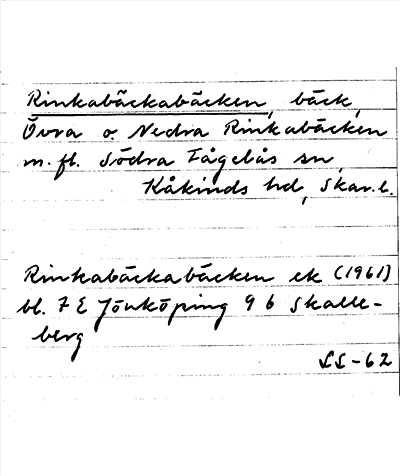 Rinkabäckabäcken, bäck,
Övra o. Nedra Rinkabäcken
m. fl. Södra Fågelås sn,
Kåkinds hd, Skar.l.
Rinkabäckabäcken ek (1961)
bl. 7 E Jönköping 9 b Skalle-
berg
SS-62